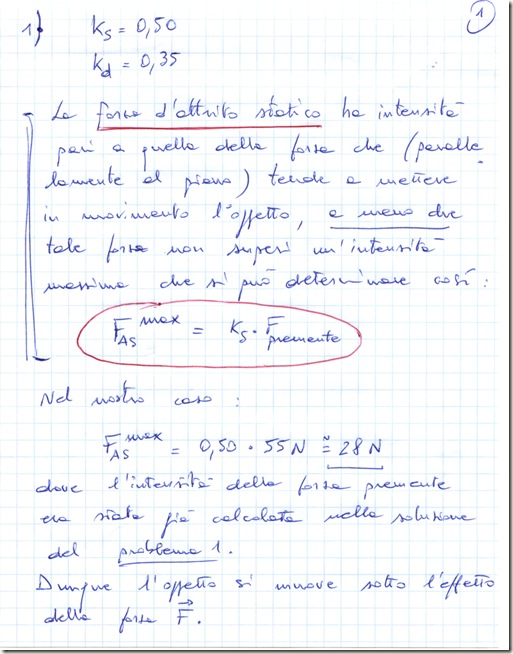 1
1)
Ks = 0,50
Kd = 0,35
La forza d'attrito statico ha intensità
pari a quella della forza che (paralle
lamente al piano) tende a mettere
in movimento l'oggetto, a meno che
tale forza non superi un'intensità
massima che si può determinare così:
F_AS^max = Ks · F_premente
Nel nostro caso :
F_AS^max = 0,50 · 55 N ≅ 28 N
dove l'intensità della forza premente
era stata già calcolata nella soluzione
del problema 1.
Dunque l'oggetto si muove sotto l'effetto
della forza F⃗.